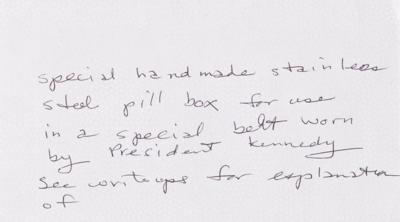 special handmade stainless
steel pill box for use
in a special belt worn
by President Kennedy
See writeups for explanation
of